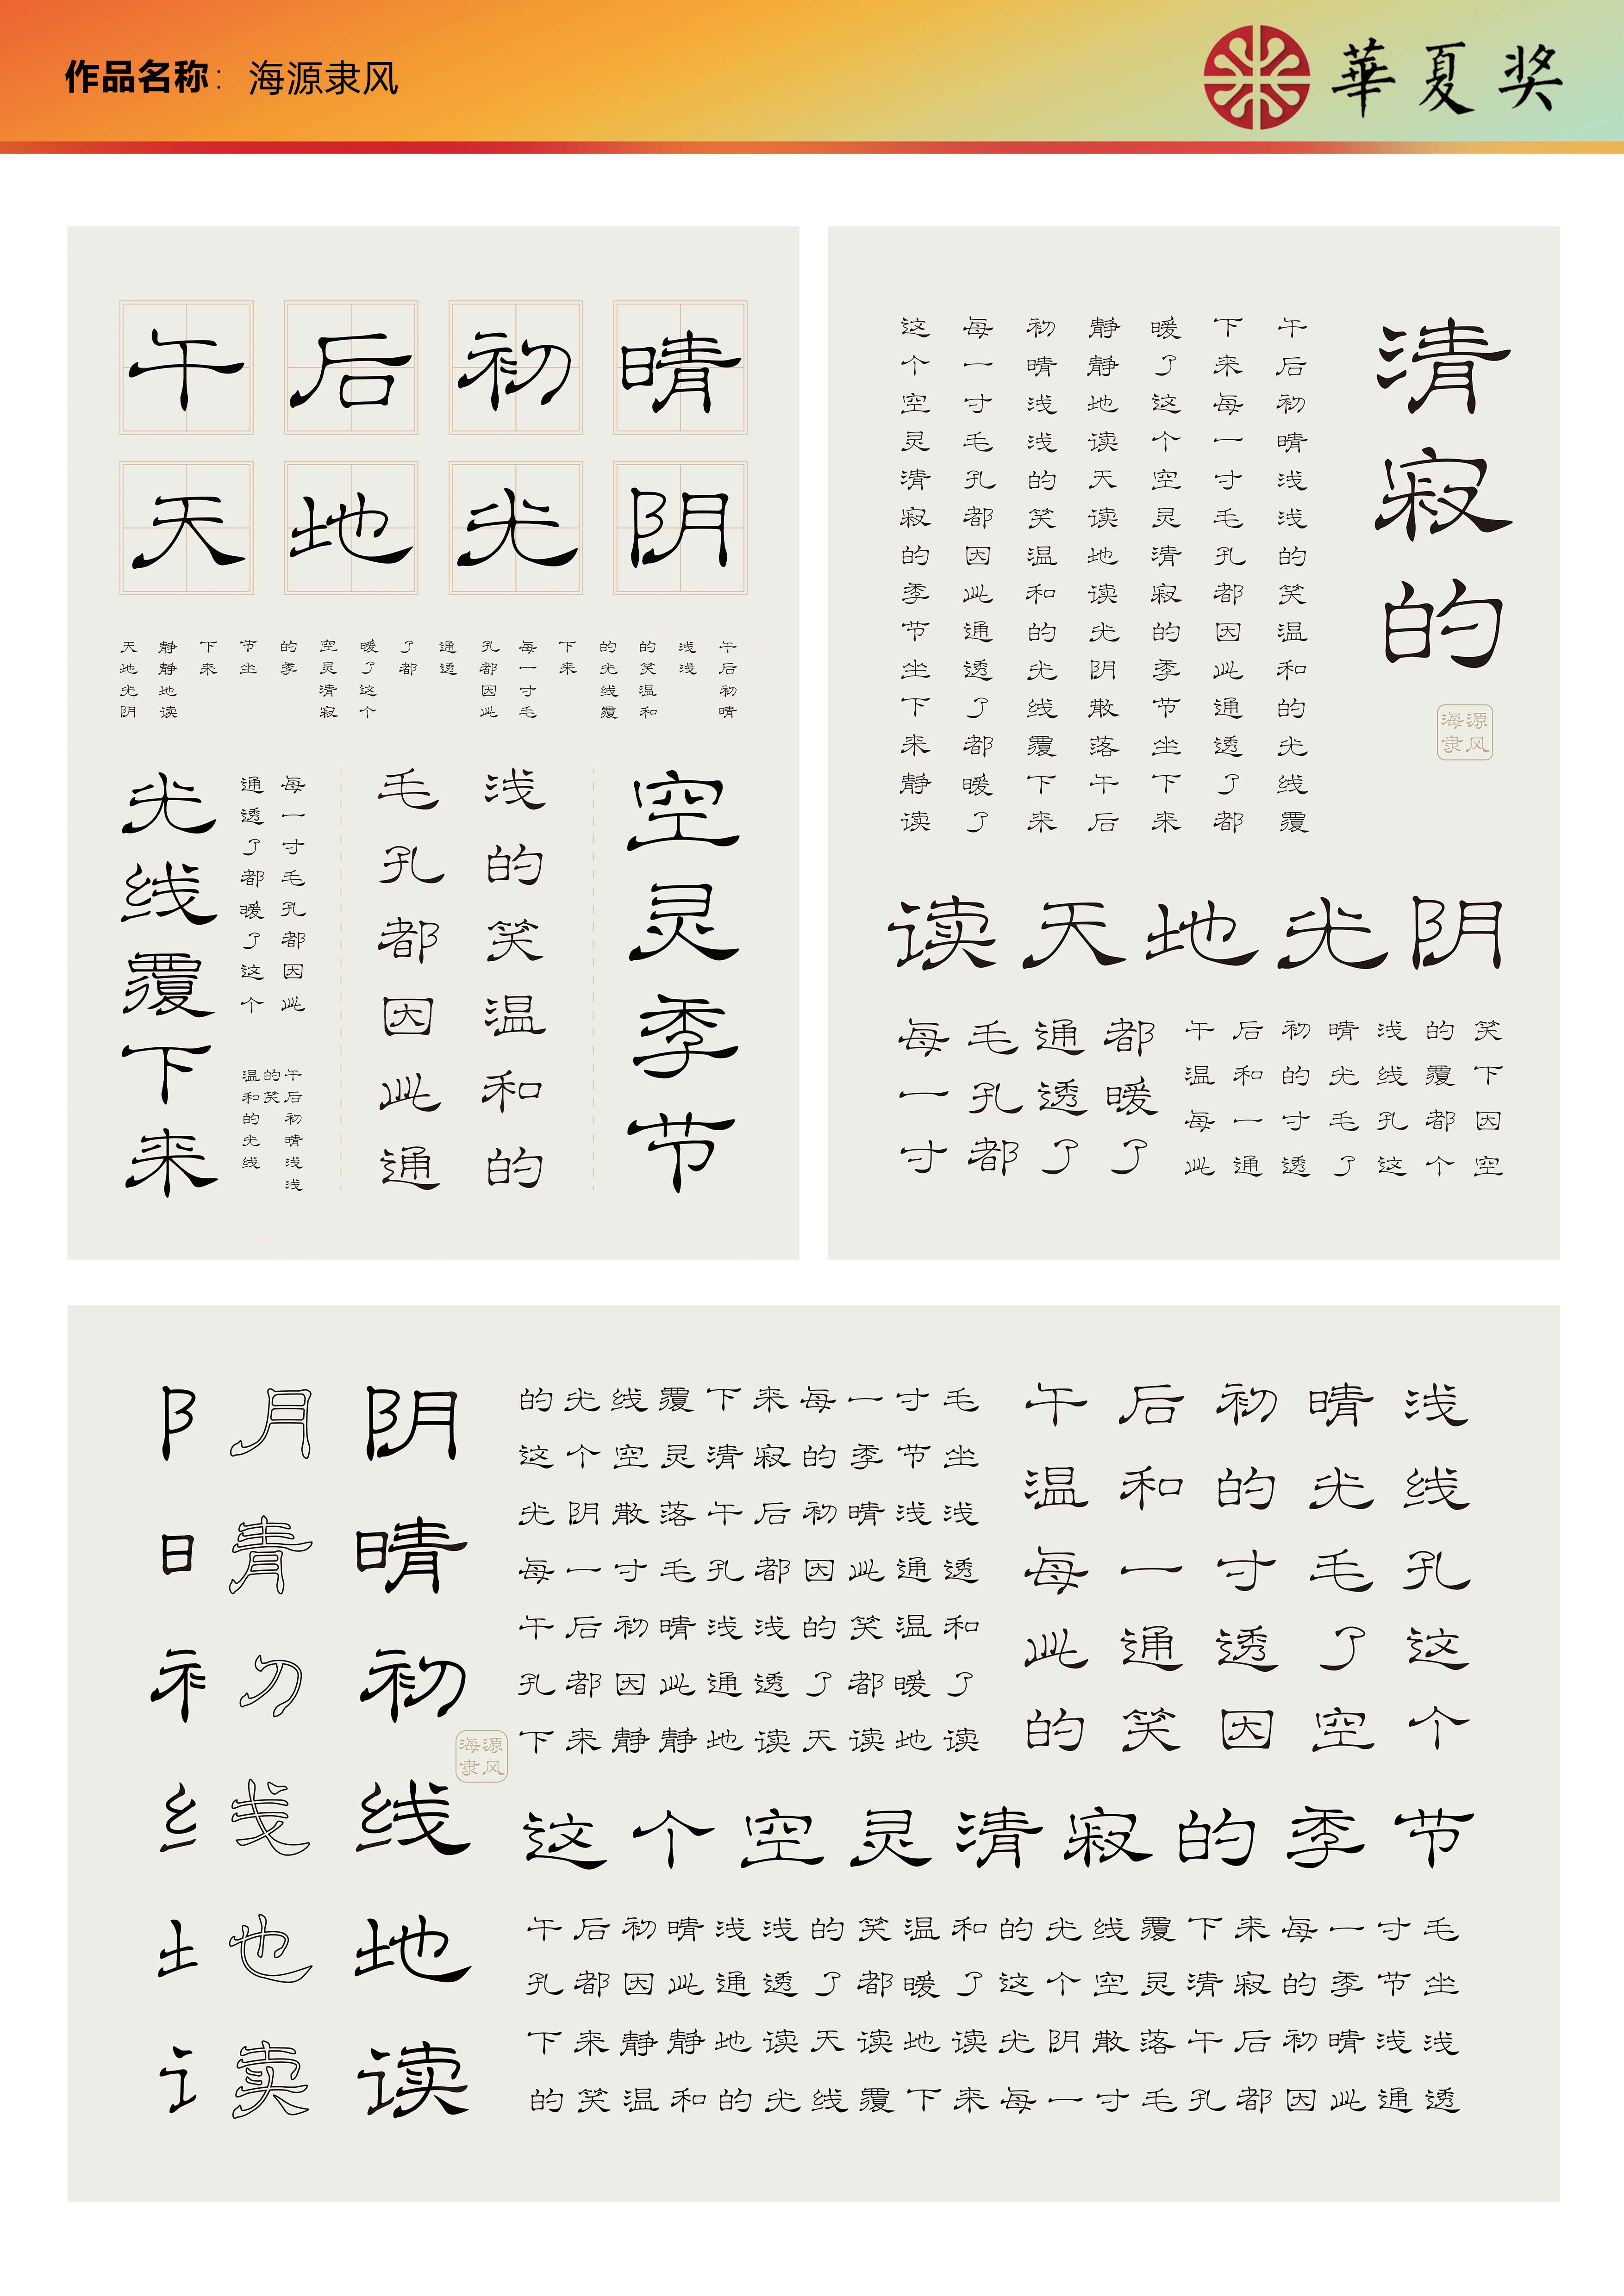 作品名称： 海源隶风
華夏奖
午后初晴
天地光阴
午后初晴
浅浅
的笑温和
的光线覆
下来
每一寸毛
孔都因此
通透
了都
暖了这个
空灵清寂
的季
节坐
下来
静静地读
天地光阴
空灵季节
浅的笑温和的
毛孔都因此通
每一寸毛孔都因此
通透了都暖了这个
午后初晴浅浅
的笑
温和的光线
光线覆下来
清寂的
海源
隶风
午后初晴浅浅的笑温和的光线覆
下来每一寸毛孔都因此通透了都
暖了这个空灵清寂的季节坐下来
静静地读天读地读光阴散落午后
初晴浅浅的笑温和的光线覆下来
每一寸毛孔都因此通透了都暖了
这个空灵清寂的季节坐下来静读
读天地光阴
每毛通都
一孔透暖
寸都了了
午后初晴浅的笑
温和的光线覆下
每一寸毛孔都因
此通透了这个空
阝月阴
日青晴
衤刀初
纟戋线
土也地
讠卖读
海源
隶风
的光线覆下来每一寸毛
这个空灵清寂的季节坐
光阴散落午后初晴浅浅
每一寸毛孔都因此通透
午后初晴浅浅的笑温和
孔都因此通透了都暖了
下来静静地读天读地读
午后初晴浅
温和的光线
每一寸毛孔
此通透了这
的笑因空个
这个空灵清寂的季节
午后初晴浅浅的笑温和的光线覆下来每一寸毛
孔都因此通透了都暖了这个空灵清寂的季节坐
下来静静地读天读地读光阴散落午后初晴浅浅
的笑温和的光线覆下来每一寸毛孔都因此通透